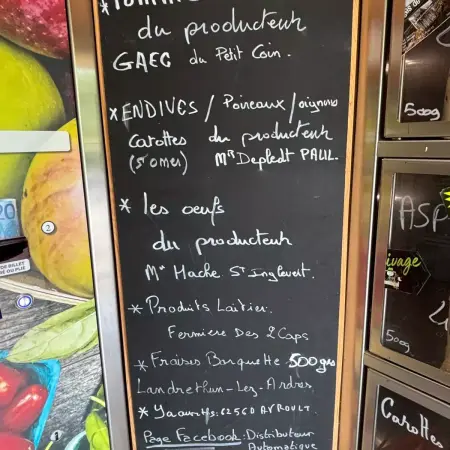 du producteur
GAEC du Petit Coin.
* ENDIVES / Poireaux / oignons
Carottes du producteur
(St omer) Mr Depledt PAUL.
* les oeufs
du producteur
Mr Hache St Inglevert.
* Produits Laitier.
Fermiere Des 2 Caps
* Fraises Barquette 500grs
Landrethun-Lez-Ardres
* Yaourts: 62560 AVROULT.
Page Facebook: Distributeur
Automatique
500g
ASP
vage
500g
Carottes
20
2
1